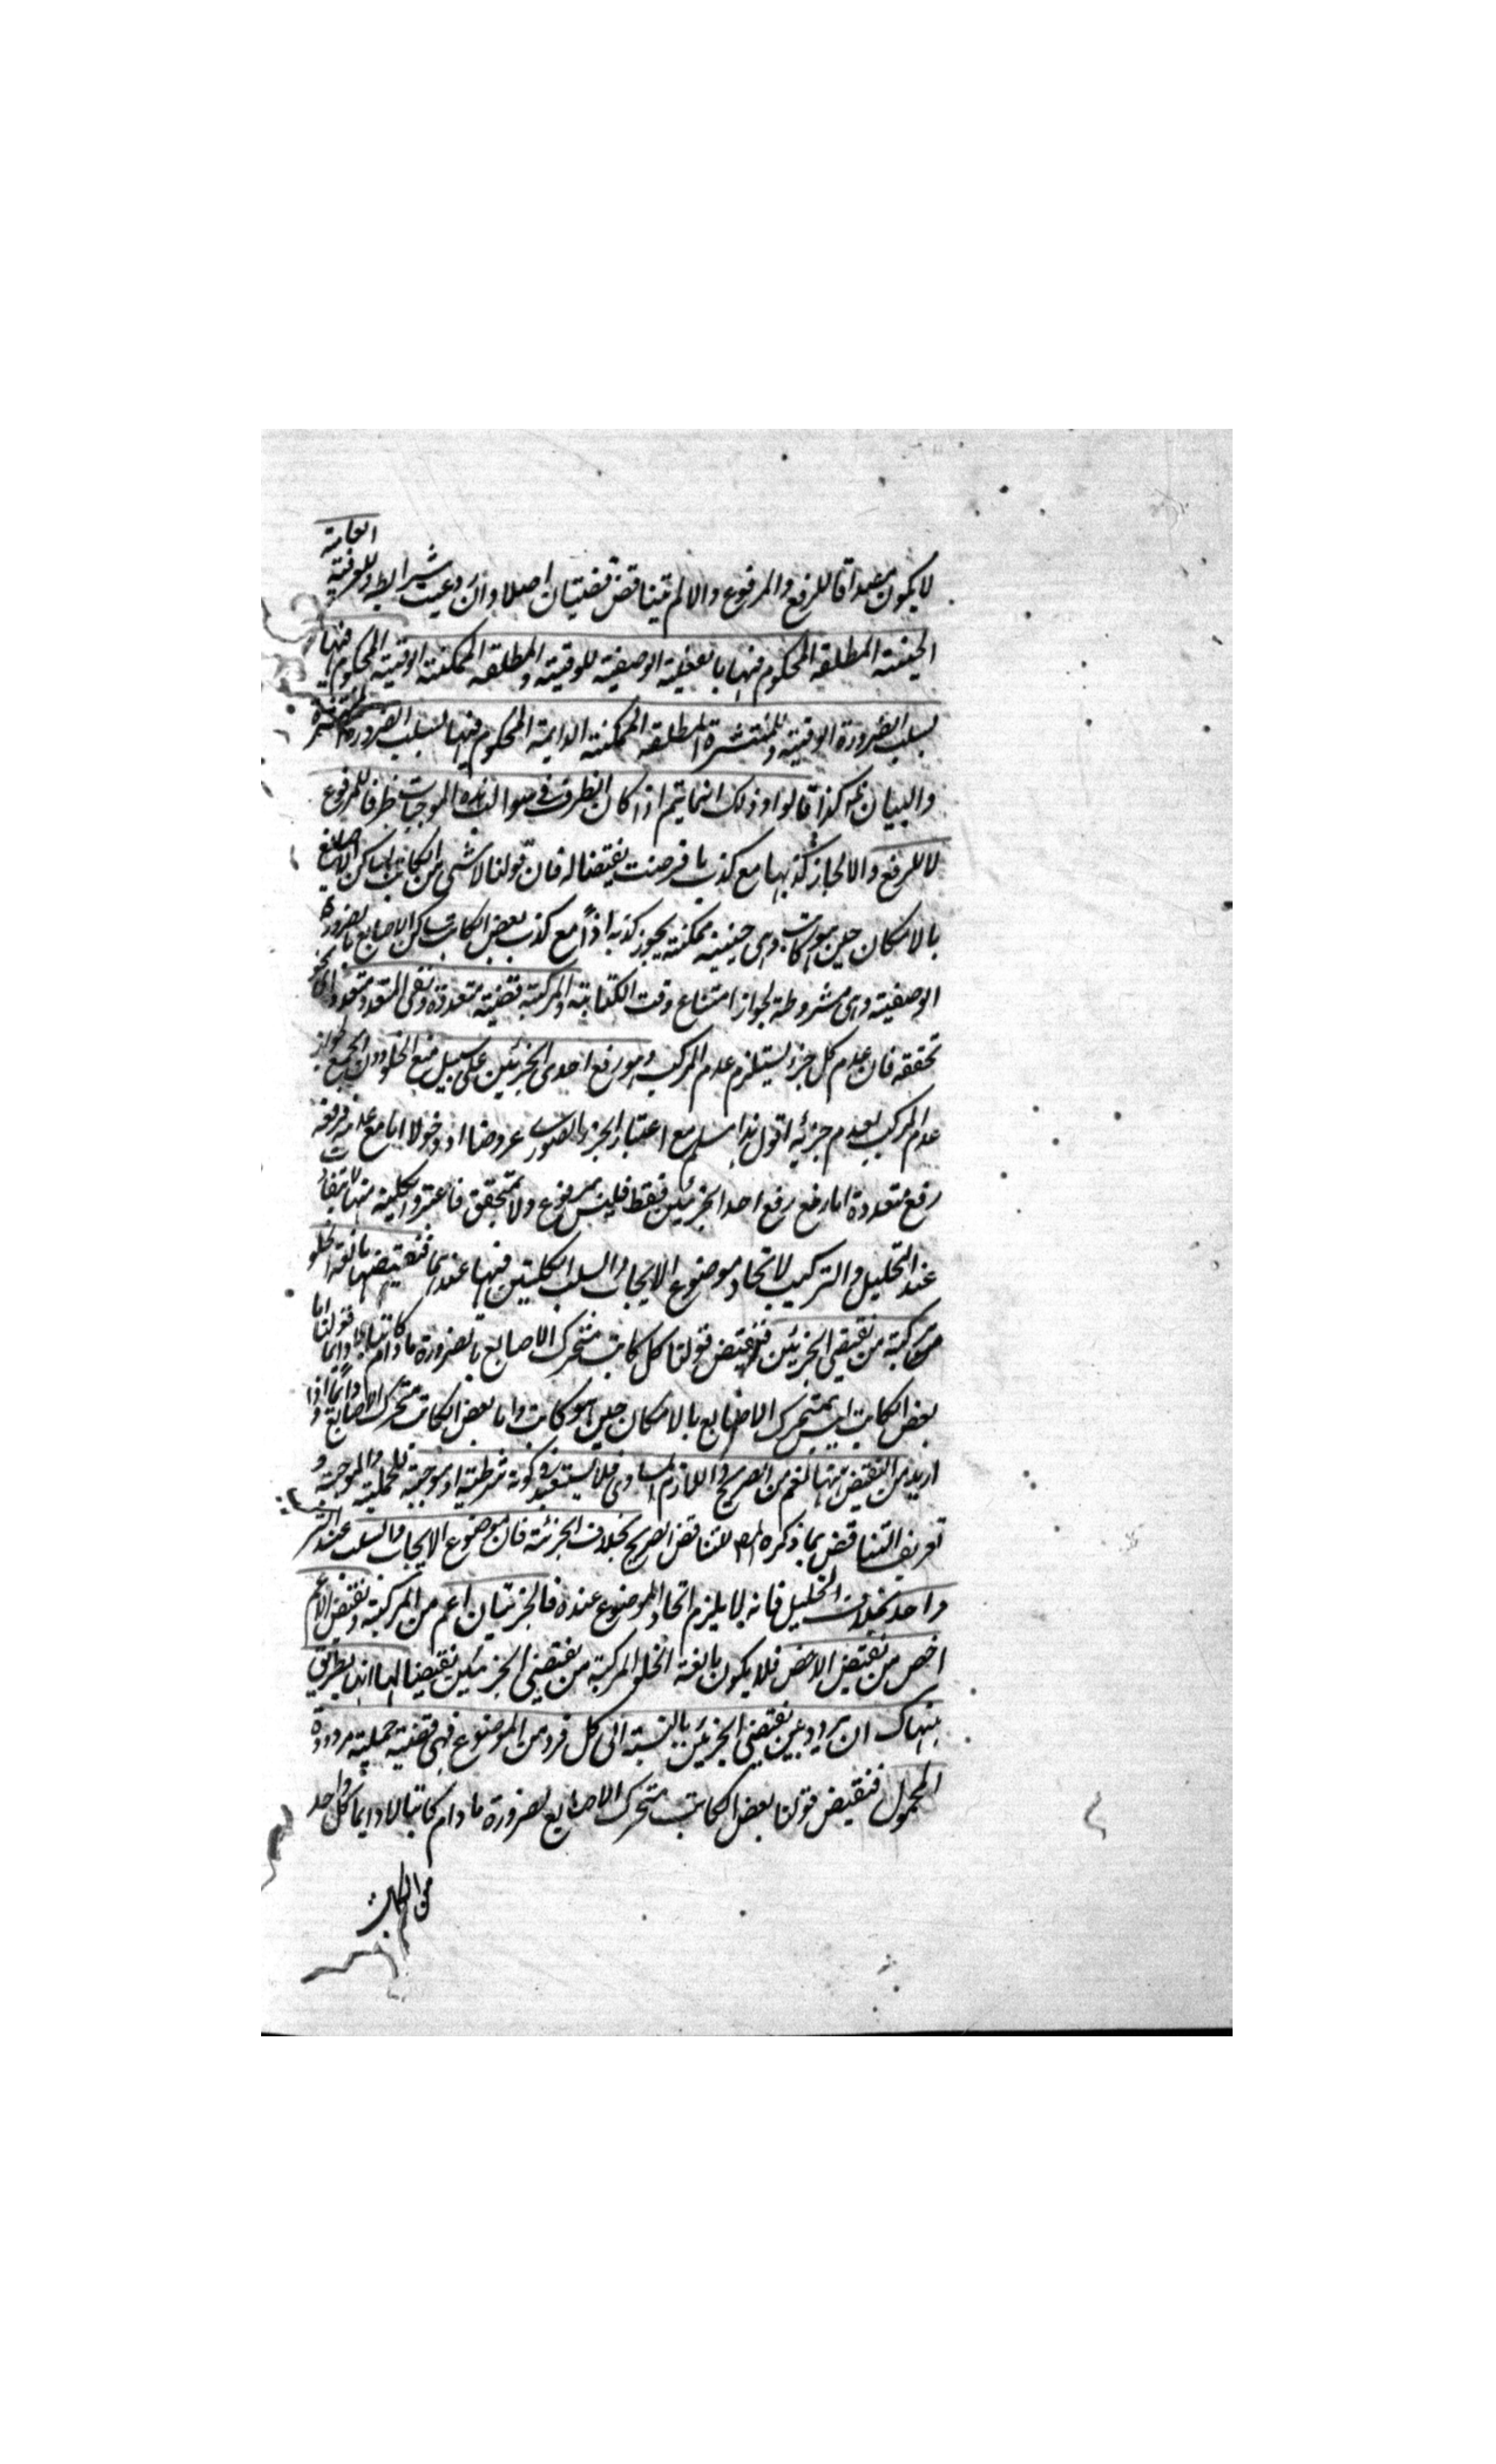 لا يكون مصداقا للرفع والمرفوع والا لم يتناقض قضيتان اصلا وان روعيت شرايط وللعرفية العامة
الحينية المطلقة المحكوم فيها بالفعلية الوصفية وللوقتية المطلقة الممكنة الوقتية المحكوم فيها
بسلب الضرورة الوقتية وللمنتشرة المطلقة الممكنة الدايمة المحكوم فيها لسلب الضرورة المنتشرة
والبيان هكذا قالوا وذلك انما يتم اذا كان الظرف في سوالب هذه الموجبات ظرفا للمرفوع
لا للرفع والا لجاز كذبها مع كذب ما فرضت نقيضا له فان قولنا لا شي من الكاتب بساكن الاصابع
بالامكان حين هو كاتب وهي حينية ممكنة يجوز كذبه اذاً مع كذب بعض الكاتب ساكن الاصابع بالضرورة
الوصفية وهي مشروطة لجواز امتناع وقت الكتابة والمركبة قضية متعددة ونفي المتعدد متعدد
تحققه فان عدم كل جزء يستلزم عدم المركب وهو رفع احدى الجزئين على سبيل منع الخلو دون الجمع لجواز
عدم المركب بعدم جزئيه اقول هذا مسلم مع اعتبار الجزء الصوري عروضا او دخولا اما مع عدمه فرفعه
رفع متعددة اما رفع احد الجزئين فقط فليس بمرفوع ولا متحقق فاعتبر والكلية منها لا تتفاوت
عند التحليل والتركيب لاتحاد موضوع الايجاب والسلب الكليتين فيها عندهما فنقيضها مانعة الخلو
مركبة من نقيضي الجزئين فنقيض قولنا كل كاتب متحرك الاصابع بالضرورة ما دام كاتبا لا دايما قولنا اما
بعض الكاتب ليس بمتحرك الاصابع بالامكان حين هو كاتب واما بعض الكاتب متحرك الاصابع دايما واذا
اريد من النقيض ههنا اعم من الصريح واللازم المساوي فلا يستبعد كونه شرطية او موجبة للحملية والموجبة و
تعريف التناقض بما ذكره للتناقض الصريح بخلاف الجزئية فان موضوع الايجاب والسلب عند
واحد بخلاف التحليل فانه لا يلزم اتحاد الموضوع عنده فالجزئيتان اعم من المركبة ونقيض الاعم
اخص من نقيض الاخص فلا يكون مانعة الخلو المركبة من نقيضي الجزئين نقيضا لها بل طريق
هناك ان يردد بين نقيضي الجزئين بالنسبة الى كل فرد من الموضوع فهي قضية حملية مرددة
المحمول فنقيض قولنا بعض الكاتب متحرك الاصابع بالضرورة ما دام كاتبا لا دايما كل واحد
من الكاتب